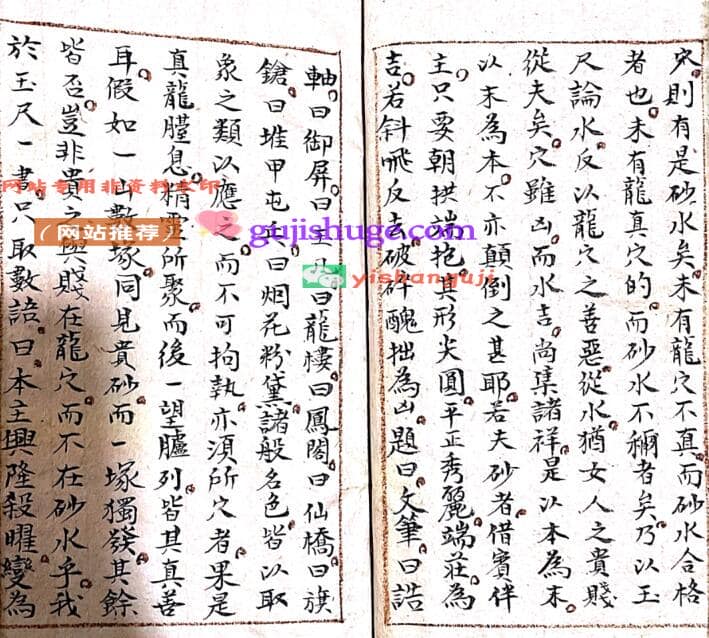 穴則有是砂水矣未有龍穴不真而砂水合格
者也未有龍真穴的而砂水不稱者矣乃以玉
尺論水反以龍穴之善惡從水猶女人之貴賤
從夫矣穴雖凶而水吉尚集諸祥是以本為末
以末為本不亦顛倒之甚耶若夫砂者借賓伴
主只要朝拱端抱其形尖圓平正秀麗端莊為
吉若斜飛反去破碎醜拙為凶題曰文筆曰誥
軸曰御屏曰玉几曰龍樓曰鳳閣曰仙橋曰旗
鎗曰堆甲屯兵曰烟花粉黛諸般名色皆以取
象之類以應之而不可拘執亦須所穴者果是
真龍胎息精靈所聚而後一望臚列皆其真善
耳假如一山數塚同見貴砂而一塚獨發其餘
皆否豈非貴之與賤在龍穴而不在砂水乎我
於玉尺一書只取數語曰本主興隆殺曜變為
网站专用非资料水印
（网站推荐）
gujishuge.com
yishanguji